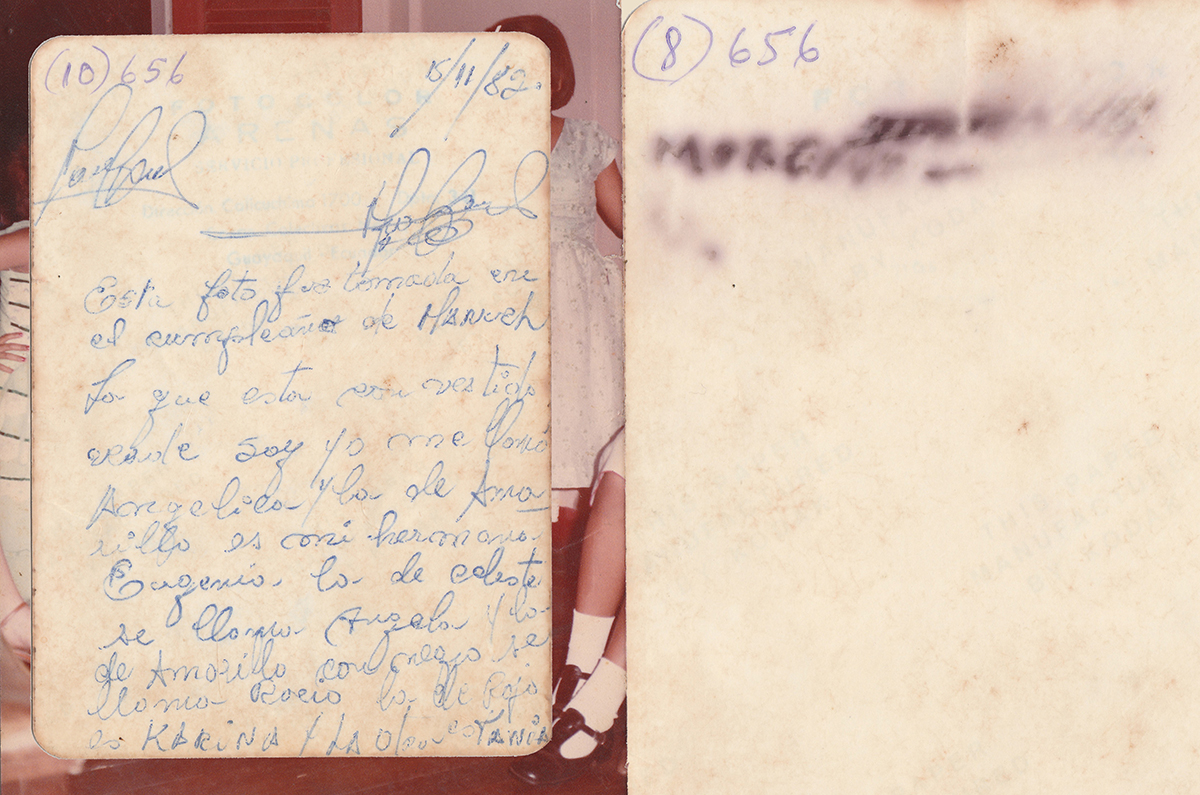 (10) 656
15/11/82.
Esta foto fue tomada en
el cumpleaños de MANUCH
La que esta con vestido
verde soy yo me llamo
Angelica y la de Ama
rillo es mi hermana
Eugenia la de celeste
se llama Angela y la
de Amarillo con negro se
llama Rocio la de Rojo
es KARINA Y LA Otra es TANIA
(8) 656